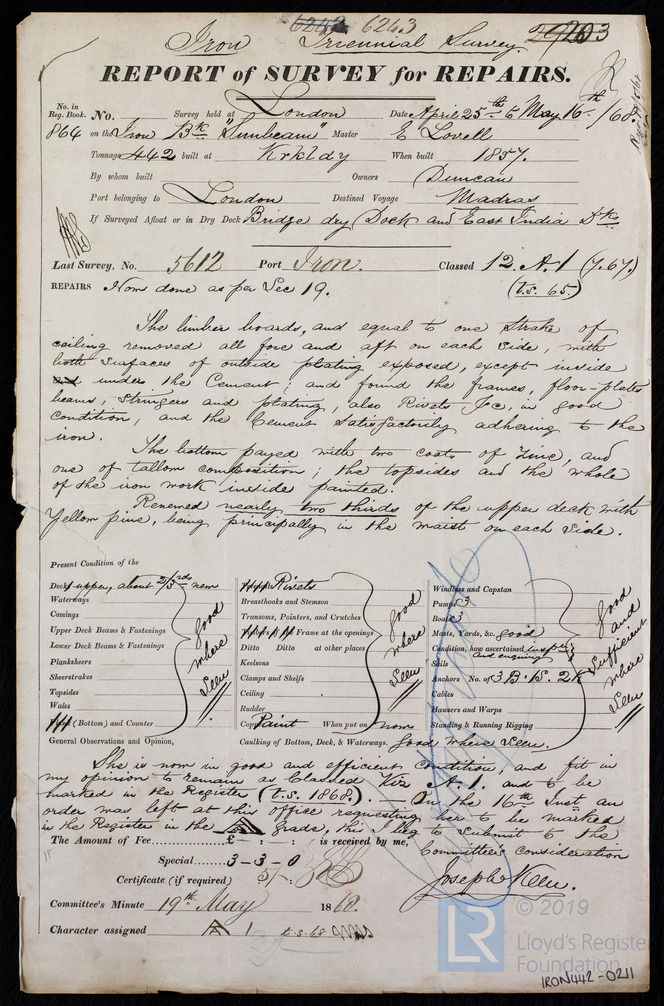 6242 6243
Iron Triennial Survey. 29203
REPORT of SURVEY for REPAIRS.
No. in Reg. Book. No. Survey held at London Date April 25th to May 16th /68
864 on the Iron Bk "Sunbeam" Master E Lovell
Tonnage 442 built at Krkldy When built 1857.
By whom built Owners Duncan
Port belonging to London Destined Voyage Madras
If Surveyed Afloat or in Dry Dock Bridge dry Dock and East India Dks
Last Survey, No. 5612 Port Iron. Classed 12. A. 1 (7.67.)
(t.s. 65.)
REPAIRS Now done as per Sec 19.
The limber boards, and equal to one Strake of
ceiling removed all fore and aft on each side, with
both surfaces of outside plating exposed, except inside
and under, the Cement; and found the frames, floor-plates
beams, Stringers and plating, also Rivets &c, in good
condition, and the Cement satisfactorily adhering to the
iron.
The bottom payed with two coats of Zinc, and
one of tallow composition; the topsides and the whole
of the iron work inside painted.
Renewed nearly two thirds of the upper deck with
Yellow pine, being principally in the waist on each side.
Present Condition of the
Decks upper, about 2/3rds new
Waterways
Comings
Upper Deck Beams & Fastenings
Lower Deck Beams & Fastenings
Planksheers
Sheerstrakes
Topsides
Wales
(Bottom) and Counter
good where seen
Rivets
Breasthooks and Stemson
Transoms, Pointers, and Crutches
Frame at the openings
Ditto Ditto at other places
Keelsons
Clamps and Shelfs
Ceiling
Rudder
Paint When put on now
good where seen
Windlass and Capstan
Pumps 3
Boats 3
Masts, Yards, &c. good
Condition, how ascertained inspn and enquiry
Sails
Anchors No. of 3 B. 1 S. 2 K
Cables
Hawsers and Warps
Standing & Running Rigging
good and sufficient where seen
General Observations and Opinion, Caulking of Bottom, Deck, & Waterways. good where seen.
She is now in good and efficient condition, and fit in
my opinion to remain as Classed Viz A. 1. and to be
marked in the Register (t.s. 1868.). On the 16th Inst an
order was left at this office requesting her to be marked
in the Register in the A grade, this I beg to submit to the
Committee's consideration
The Amount of Fee £ : : is received by me,
Special 3-3-0
Certificate (if required) 5/-:
Joseph Keen.
Committee's Minute 19th May 1868.
Character assigned A 1 t.s. 68
LR © 2019
Lloyd's Register
Foundation
IRON442-0211